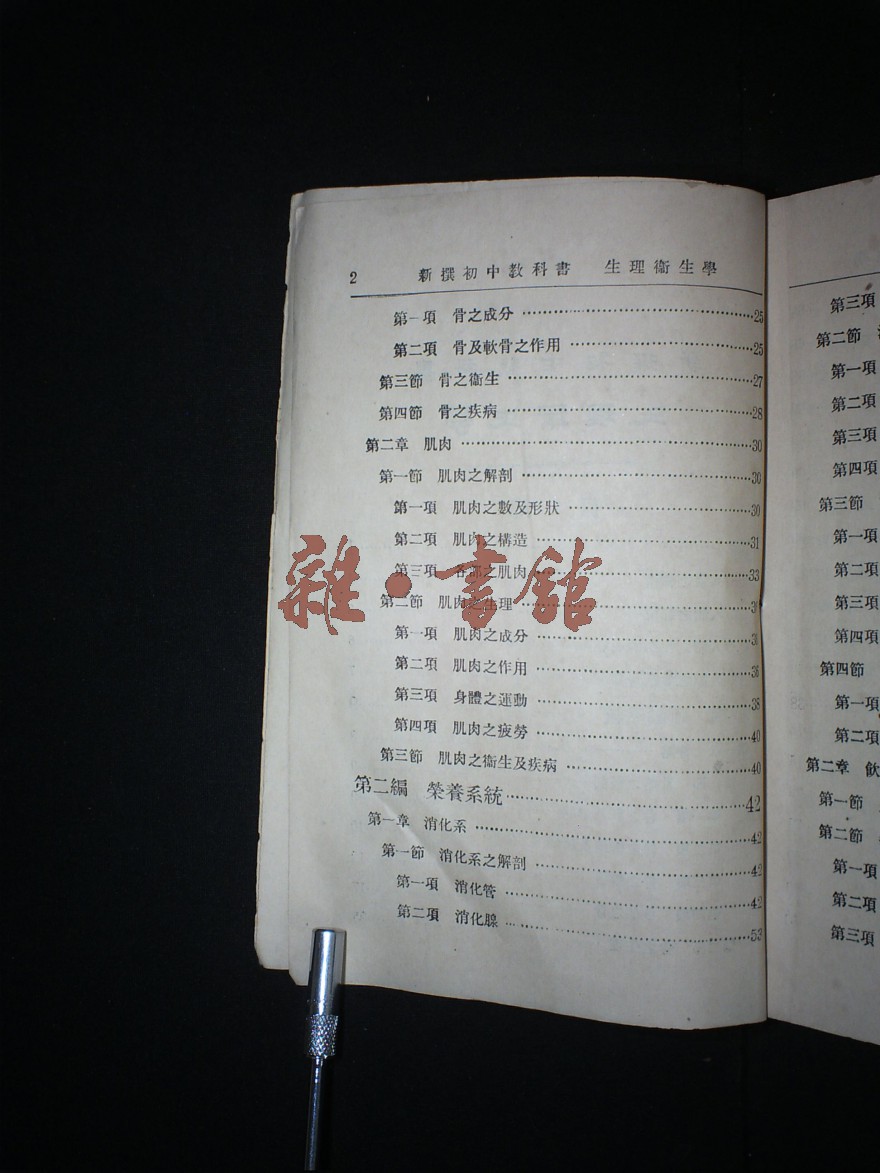 2 新撰初中教科書 生理衞生學
第一項 骨之成分 ……25
第二項 骨及軟骨之作用 ……25
第三節 骨之衞生 ……27
第四節 骨之疾病 ……28
第二章 肌肉 ……30
第一節 肌肉之解剖 ……30
第一項 肌肉之數及形狀 ……30
第二項 肌肉之構造 ……31
第三項 各部之肌肉 ……33
第二節 肌肉之生理
第一項 肌肉之成分
第二項 肌肉之作用 ……36
第三項 身體之運動 ……38
第四項 肌肉之疲勞 ……40
第三節 肌肉之衞生及疾病 ……40
第二編 榮養系統 ……42
第一章 消化系 ……42
第一節 消化系之解剖 ……42
第一項 消化管 ……42
第二項 消化腺 ……53
雜·書館
第三項
第二節
第一項
第二項
第三項
第四項
第三節
第一項
第二項
第三項
第四項
第四節
第一項
第二項
第二章 飮
第一節
第二節
第一項
第二項
第三項